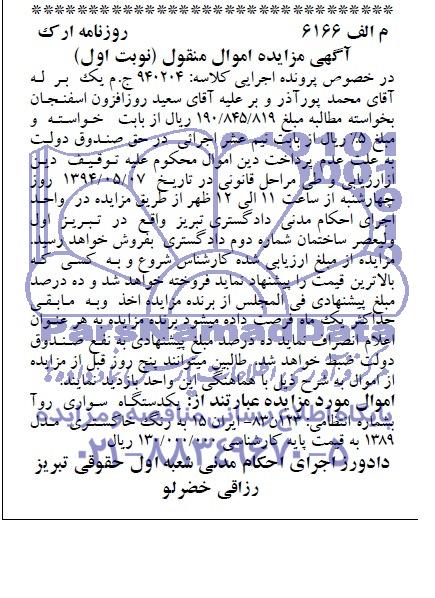 م الف ۶۱۶۶ روزنامه ارک
آگهی مزایده اموال منقول (نوبت اول)
در خصوص پرونده اجرایی کلاسه: ۹۴۰۲۰۴ ج.م یک بر له
آقای محمد پورآذر و بر علیه آقای سعید روزافزون اسفنجان
بخواسته مطالبه مبلغ ۱۹۰/۸۴۵/۸۱۹ ریال از بابت خواسته و
مبلغ ۷/۵ ریال از بابت نیم عشر اجرائی در حق صندوق دولت
به علت عدم پرداخت دین اموال محکوم علیه توقیف دین
ازارزیابی و طی مراحل قانونی در تاریخ ۱۳۹۴/۰۵/۰۷ روز
چهارشنبه از ساعت ۱۱ الی ۱۲ ظهر از طریق مزایده در واحد
اجرای احکام مدنی دادگستری تبریز واقع در تبریز اول
ولیعصر ساختمان شماره دوم دادگستری بفروش خواهد رسید.
مزایده از مبلغ ارزیابی شده کارشناس شروع و به کسی که
بالاترین قیمت را پیشنهاد نماید فروخته خواهد شد و ده درصد
مبلغ پیشنهادی فی المجلس از برنده مزایده اخذ وبه مابقی
حداکثر یک ماه فرصت داده میشود برنده مزایده به هر عنوان
اعلام انصراف نماید ده درصد مبلغ پیشنهادی به نفع صندوق
دولت ضبط خواهد شد. طالبین میتوانند پنج روز قبل از مزایده
از اموال به شرح ذیل با هماهنگی این واحد بازدید نمایند.
اموال مورد مزایده عبارتند از: یکدستگاه سواری روآ
بشماره انتظامی ۲۳۳ن۸۳- ایران ۱۵ به رنگ خاکستری مدل
۱۳۸۹ به قیمت پایه کارشناسی ۱۳۰/۰۰۰/۰۰۰ ریال
دادورز اجرای احکام مدنی شعبه اول حقوقی تبریز
رزاقی خضرلو
ParsNamadData
پایگاه اطلاع رسانی مناقصه ومزایده
۰۲۱-۸۸۳۴۹۶۷۰-۵